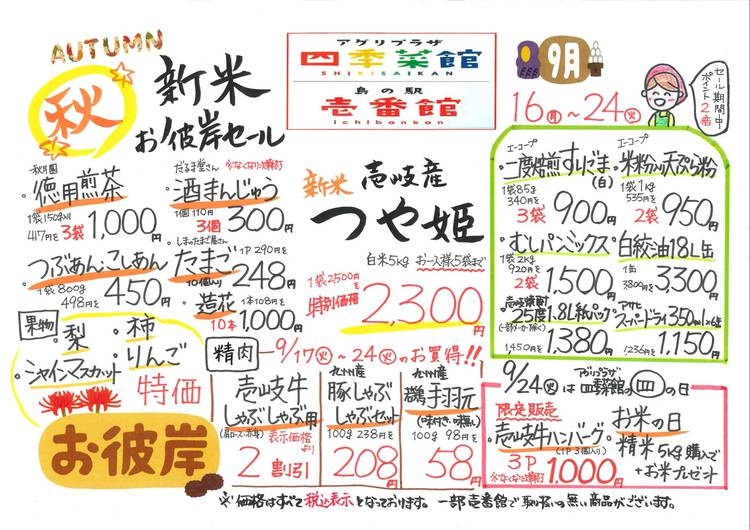 AUTUMN
秋
新米
お彼岸セール
アグリプラザ
四季菜館
SHIKISAIKAN
島の駅
壱番館
ichibankan
9月
16(月)~24(火)
セール期間中
ポイント2倍
秋月園
・徳用煎茶
1袋150g入り
417円を3袋1,000円
だるま堂さん
※なくなり次第終了
・酒まんじゅう
1個110円
3個300円
・つぶあん・こしあん
1袋800g
498円を450円
しまのたまご屋さん
・たまご
10個入り
1P290円を248円
・造花
1本108円を
10本1,000円
新米
壱岐産
つや姫
白米5kgお一人様5袋まで
1袋2500円を
特別価格
2,300円
エーコープ
・一度焙煎すりごま(白)
1袋85g
340円を
3袋900円
エーコープ
・米粉入り天ぷら粉
1袋1kg
535円を
2袋950円
・むしパンミックス
1袋2kg
920円を
2袋1,500円
・白絞油18L缶
1缶
3,800円を3,300円
・壱岐焼酎
25度1.8L紙パック
(一部メーカー除く)
1,450円を1,380円
アサヒ
・スーパードライ350ml×6缶
1236円を1,150円
果物
・梨
・柿
・シャインマスカット
・りんご
特価
お彼岸
精肉
9/17(火)~24(火)のお買得!!
・壱岐牛
しゃぶしゃぶ用
(肩ロース・赤身)
表示価格より
2割引
九州産
・豚しゃぶ
しゃぶセット
100g238円を
208円
九州産
・鶏手羽元
(味付き・味無し)
100g98円を
58円
9/24(火)は
アグリプラザ
四季菜館の四の日
限定販売
・壱岐牛ハンバーグ
(1P3個入り)
3P
※なくなり次第終了
1,000円
・お米の日
精米5kg購入で
+お米プレゼント
※価格はすべて税込表示となっております。一部壱番館で取り扱いの無い商品がございます。